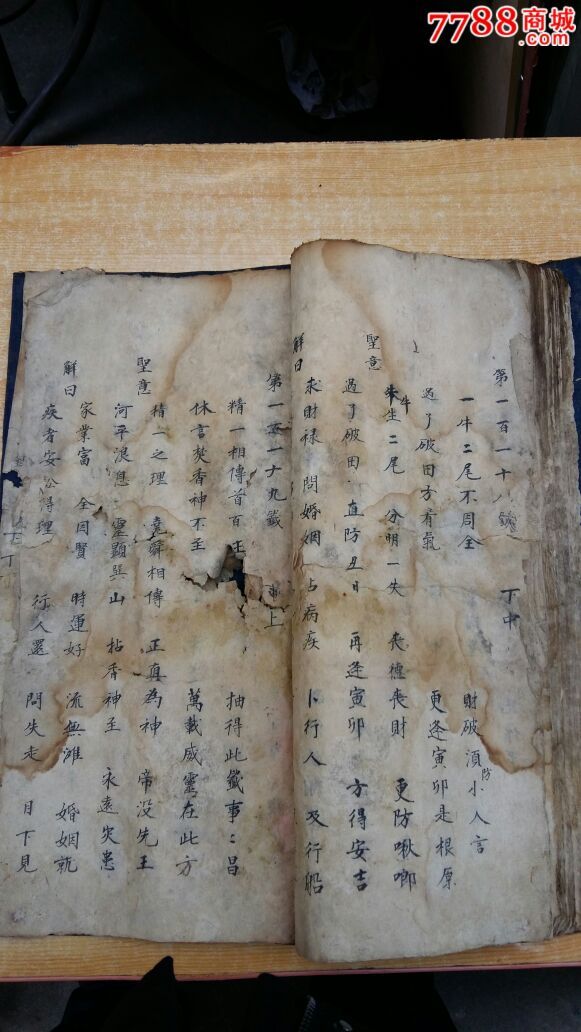 7788商城
.com
第一百一十八籤 下中
一牛二尾不周全 財破須防小人言
過了破田方有氣 更逢寅卯是根原
聖意
牛生二尾 分明一失 丧德丧財 更防啾唧
過了破田 直防丑日 再逢寅卯 方得安吉
解曰
求財禄 問婚姻 占病疾 卜行人 及行船
第一百一十九籤 上
精一相傳首百王 抽得此籤事〻昌
休言焚香神不至 萬載威靈在此方
聖意
精一之理 堯舜相傳 正真為神 帝没先王
河平浪息 靈顕英山 拈香神至 永遠灾患
解曰
家業富 全因賢 時運好 流無滩 婚姻就
疾者安 訟得理 行人還 問失走 目下見